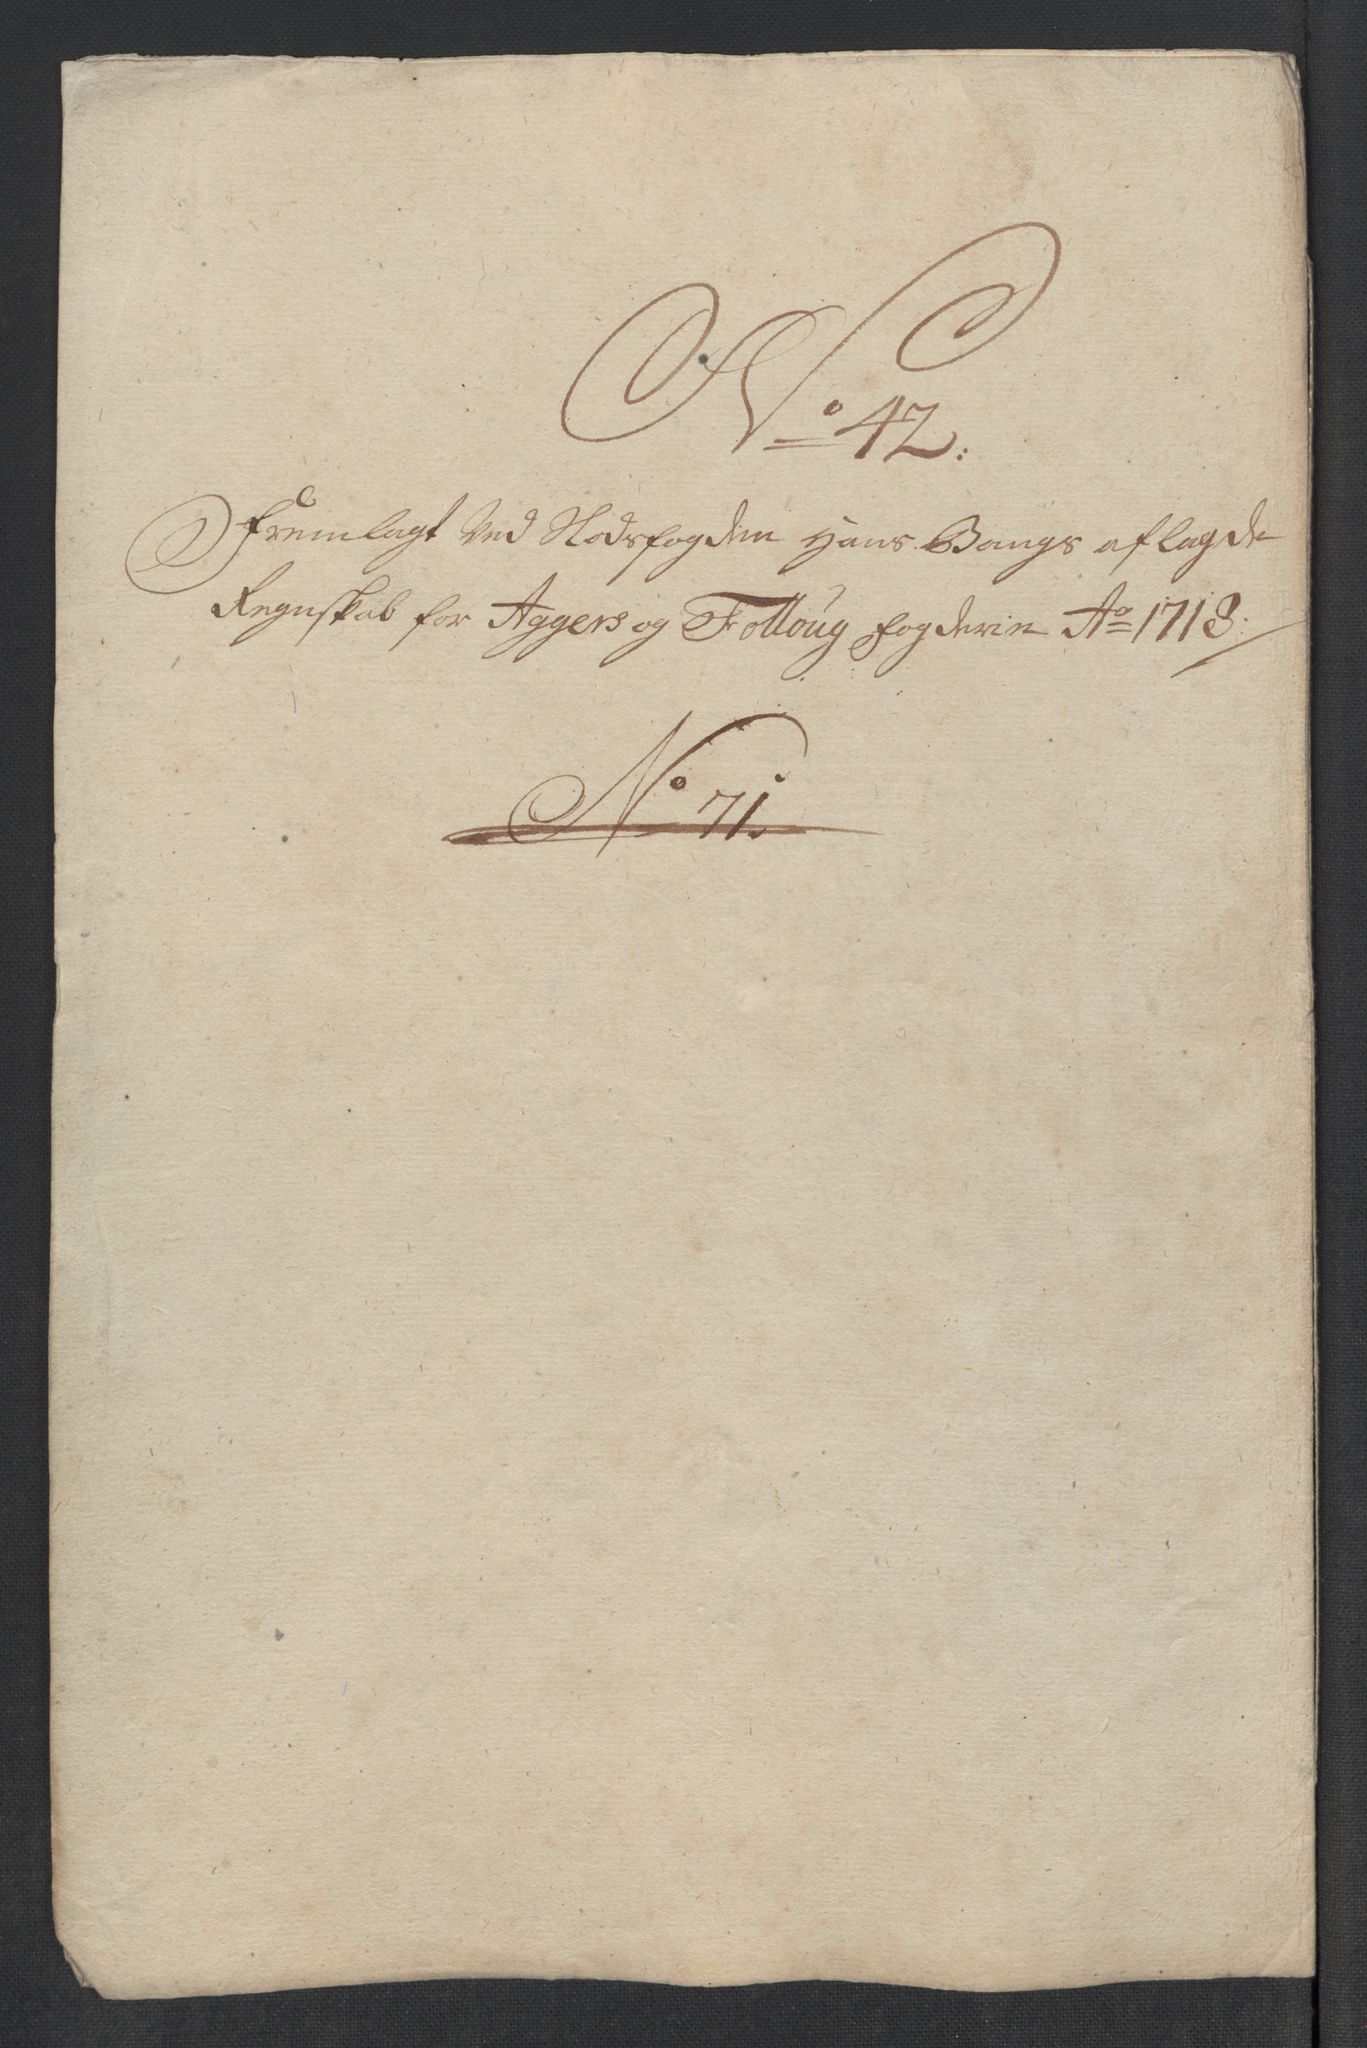 No 42:
Fremlagt Ved Stadsfogden Hans Bangs aflagde
Regnskab for Aggers og Folloug fogderie Ao 1718.
No 71.